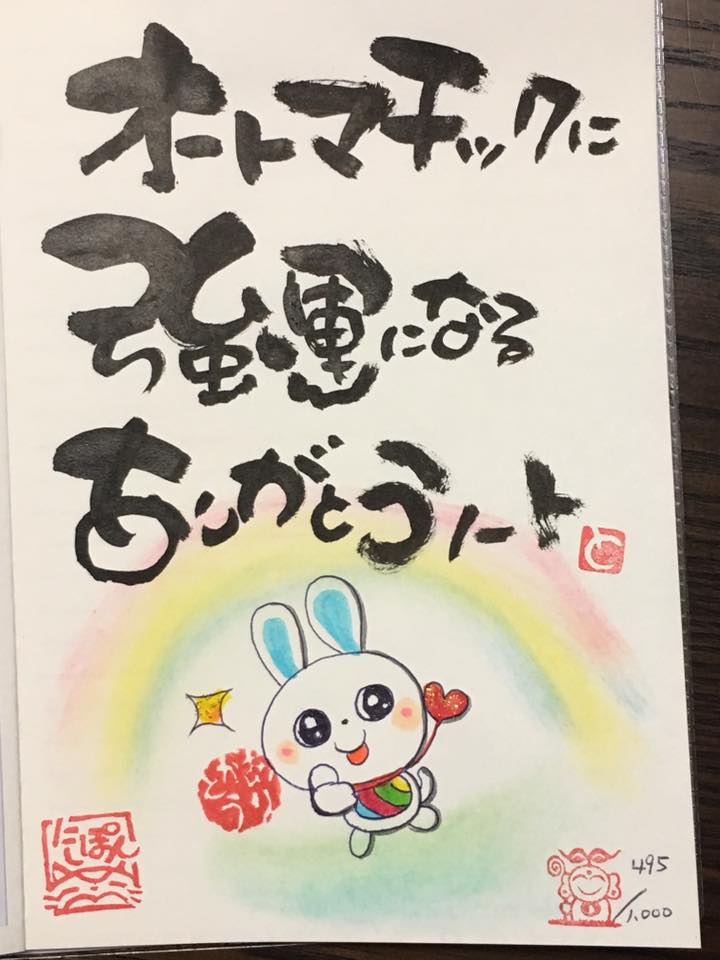 オートマチックに
強運になる
ありがとうノート
と
にしぽん
495/1.000